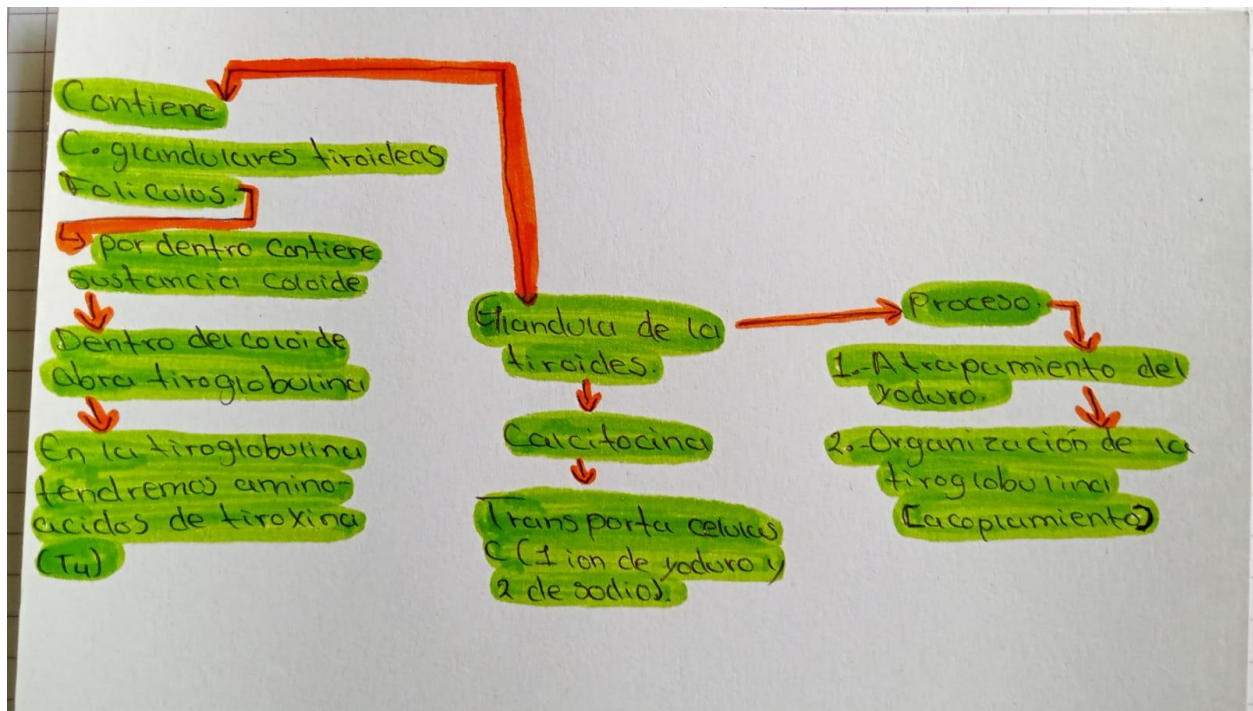 Contiene
C. glandulares tiroideas
Foliculos.
por dentro contiene
sustancia coloide
Dentro del coloide
abra tiroglobulina
En la tiroglobulina
tendremos amino-
acidos de tiroxina
(T4)
Glandula de la
tiroides.
Calcitocina
Transporta celulas
C (1 ion de yoduro y
2 de sodio).
Proceso.
1.-Atrapamiento del
yoduro.
2.-Organización de la
tiroglobulina
(acoplamiento)